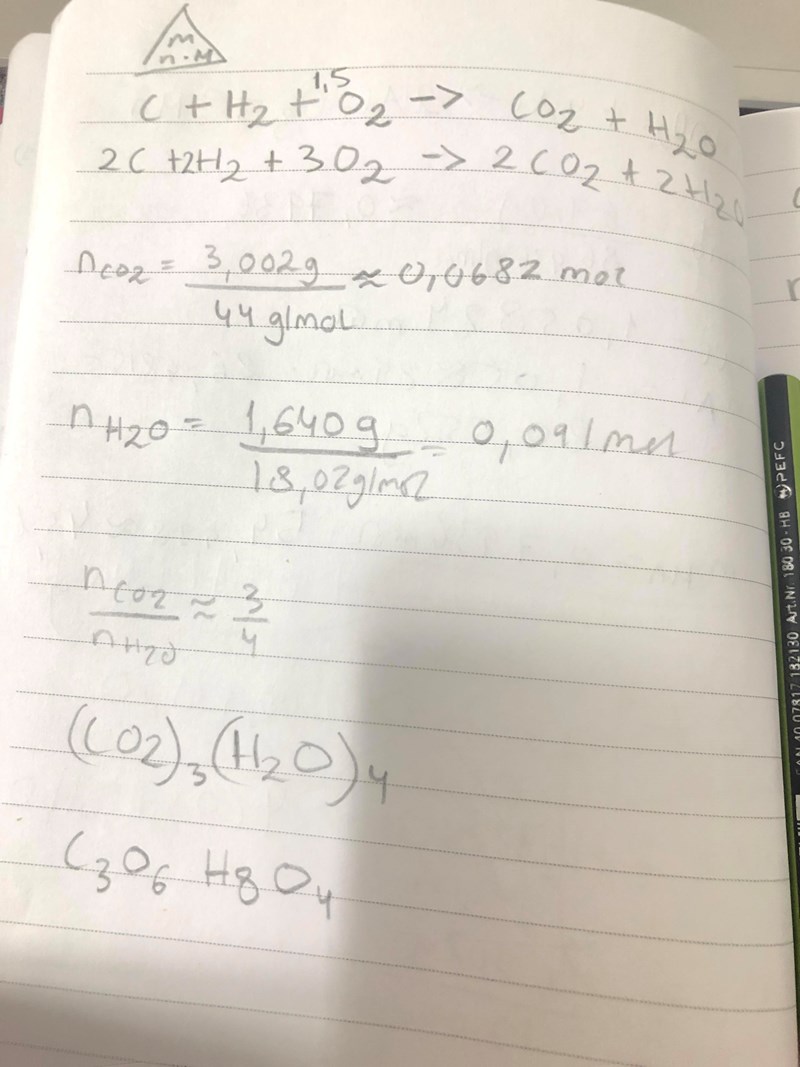 m
n·M
C + H2 + 1,5 O2 -> CO2 + H2O
2C +2H2 + 3O2 -> 2CO2 + 2H2O
nCO2 = 3,002g / 44 g/mol ≈ 0,0682 mol
nH2O = 1,640g / 18,02g/mol = 0,091mol
nCO2 / nH2O ≈ 3/4
(CO2)3(H2O)4
C3O6 H8O4
Art.Nr. 180 30 - HB PEFC